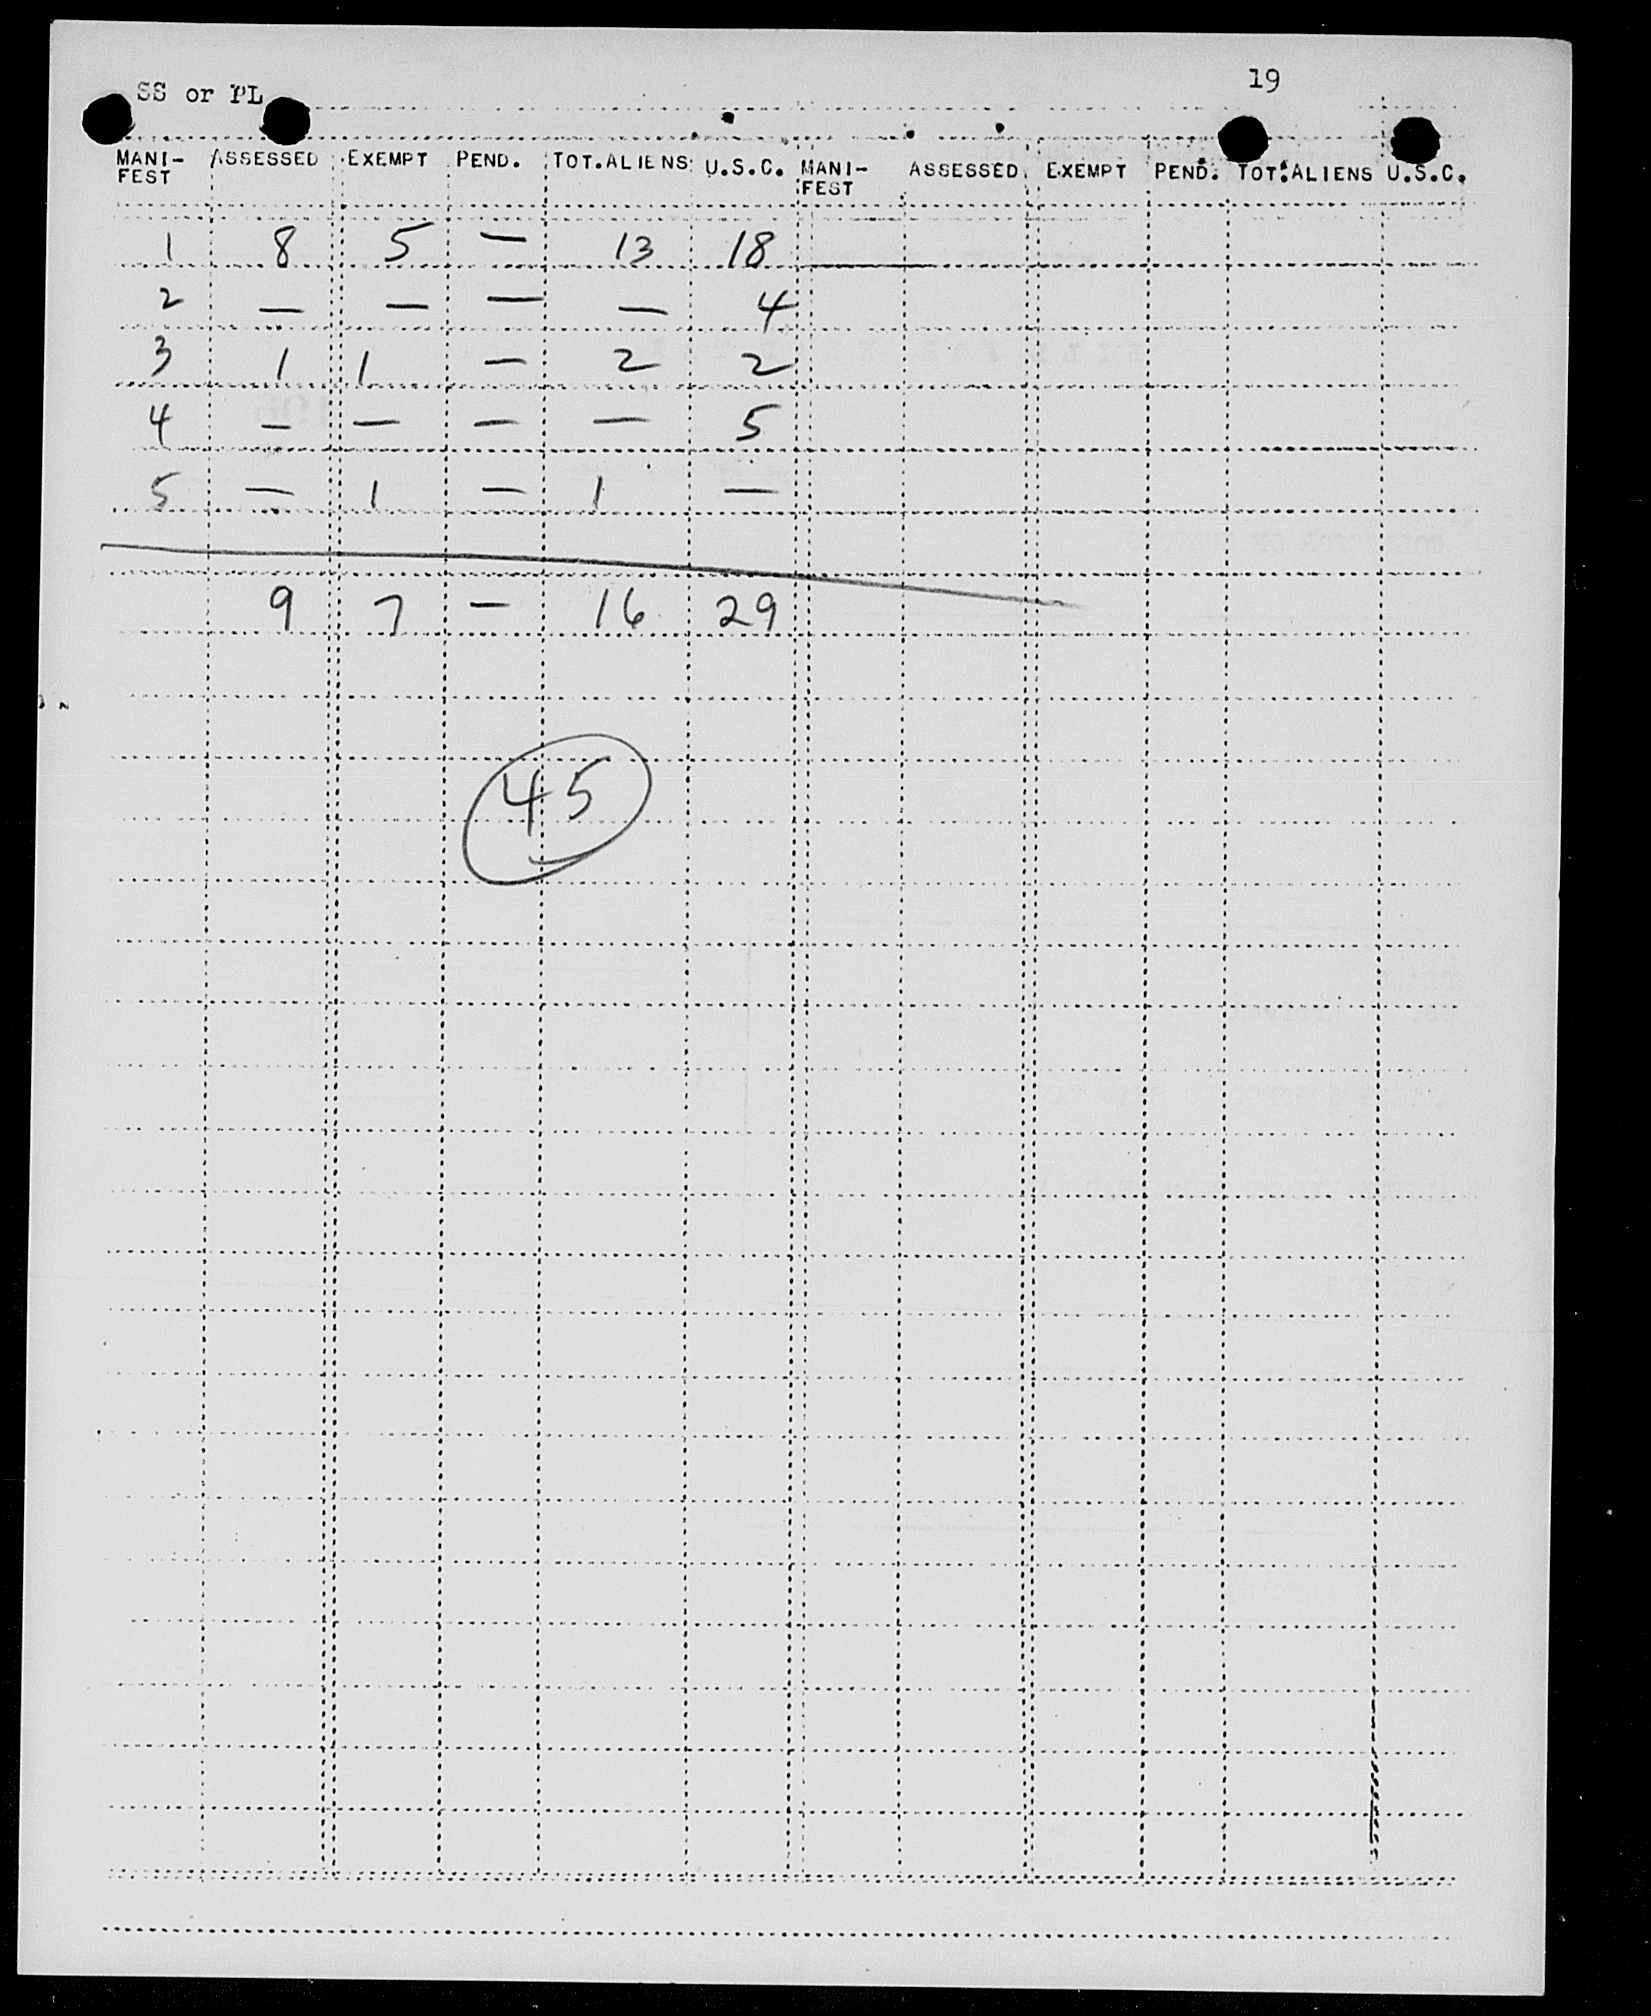 SS or PL 19
MANI- ASSESSED EXEMPT PEND. TOT.ALIENS U.S.C. MANI- ASSESSED EXEMPT PEND. TOT.ALIENS U.S.C.
FEST FEST
1 8 5 — 13 18
2 — — — — 4
3 1 1 — 2 2
4 — — — — 5
5 — 1 — 1 —
9 7 — 16 29
45